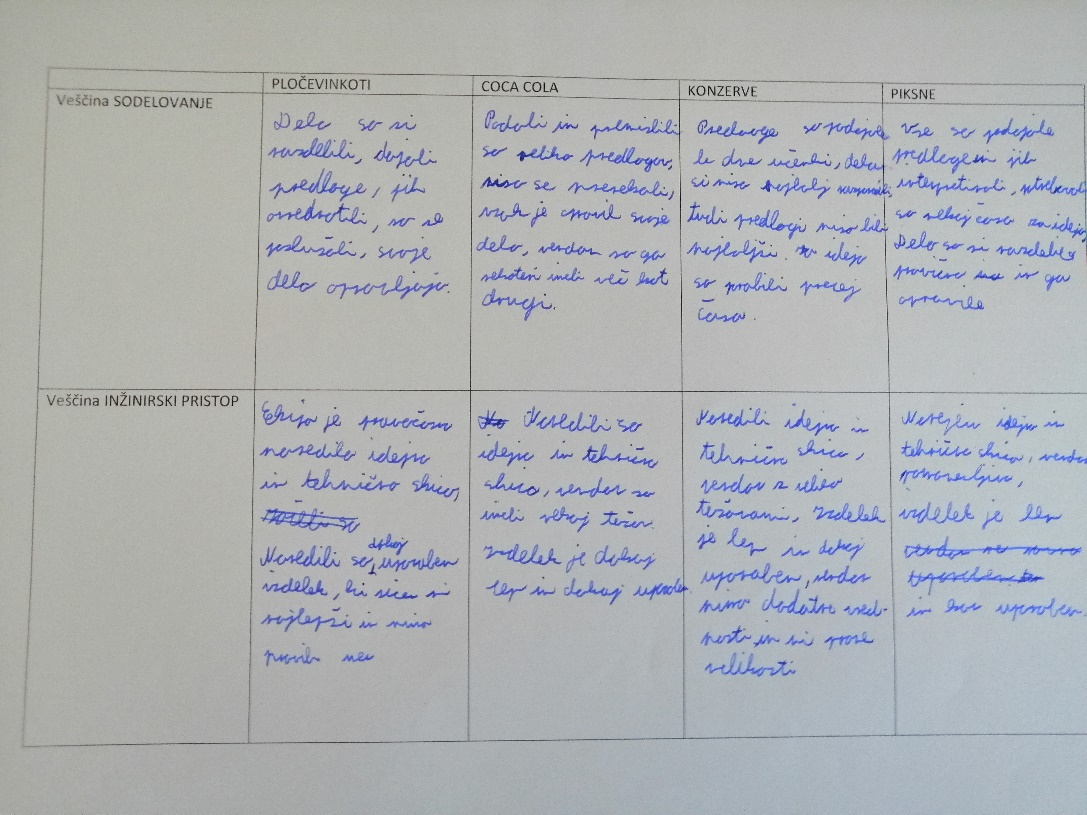 PLOČEVINKOTI
COCA COLA
KONZERVE
PIKSNE
Veščina SODELOVANJE
Delo so si
razdelili, dajali
predloge, jih
so se
poslušali, svoje
delo opravljajo.
Podali in
so veliko predlogov,
niso se
vsak je opravil svoje
delo, vendar so ga
nekateri imeli več kot
drugi.
Predloge so podajale
le dve učenki, dela
si niso najbolj
tudi predlogi niso bili
najboljši. ideja
so rabili precej
časa.
Vse so podajale
predloge in jih
so nekaj časa za idejo,
Delo so si razdelile
pravično in ga
opravile
Veščina INŽINIRSKI PRISTOP
Ekipa je
naredila idejno
in tehnično skico,
Naredili so dokaj uporaben
izdelek, ki sicer ni
najlepši in nima
Naredili so
idejno in tehnično
skico, vendar so
imeli nekaj težav.
Izdelek je dokaj
lep in dokaj uporaben
Naredili idejno in
tehnično skico,
vendar z veliko
težavami, Izdelek
je lep in dokaj
uporaben, vendar
nima dodatne vred-
nosti in ni prave
velikosti
idejno in
tehnično skico, vendar
izdelek je lep
in uporaben.